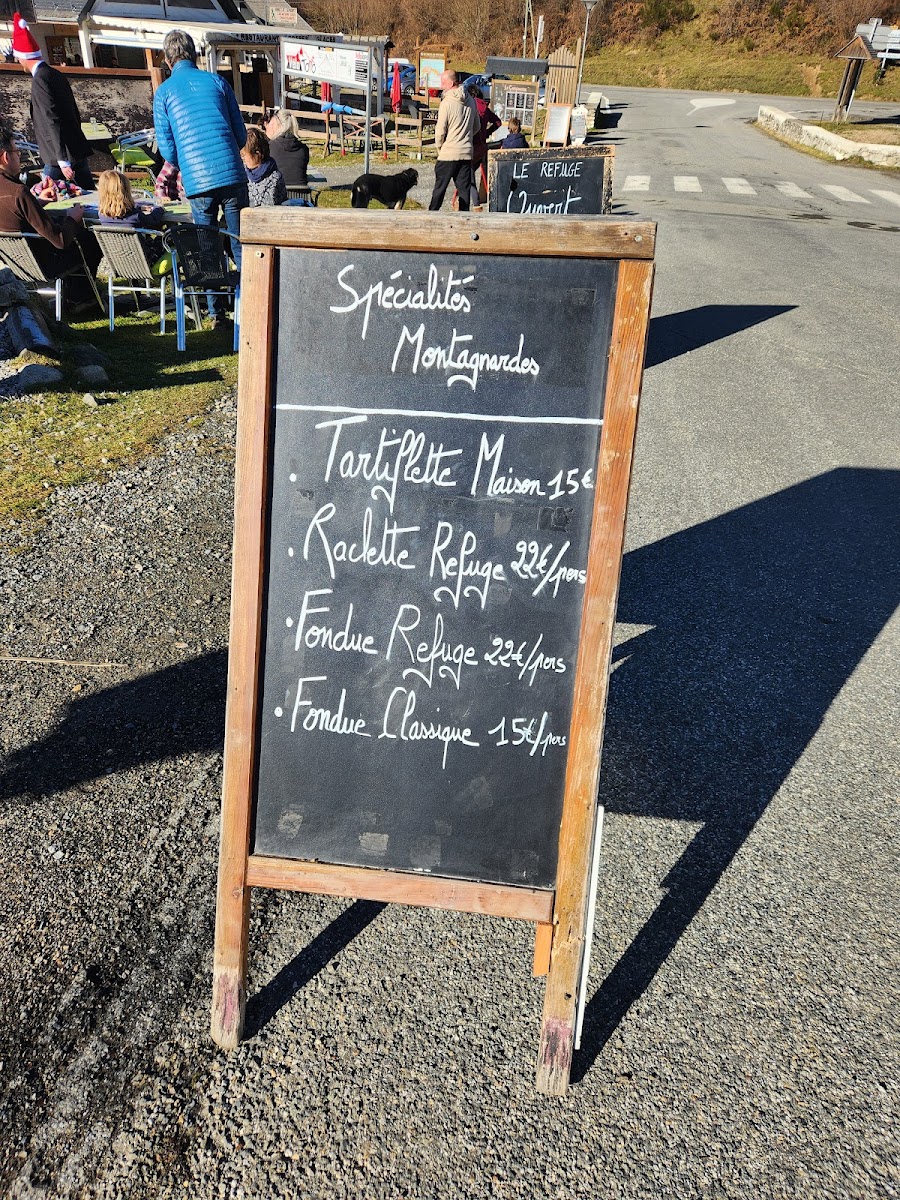 LE REFUGE
Ouvert
Spécialités
Montagnardes
. Tartiflette Maison 15€
. Raclette Refuge 22€/pers
. Fondue Refuge 22€/pers
. Fondue Classique 15€/pers